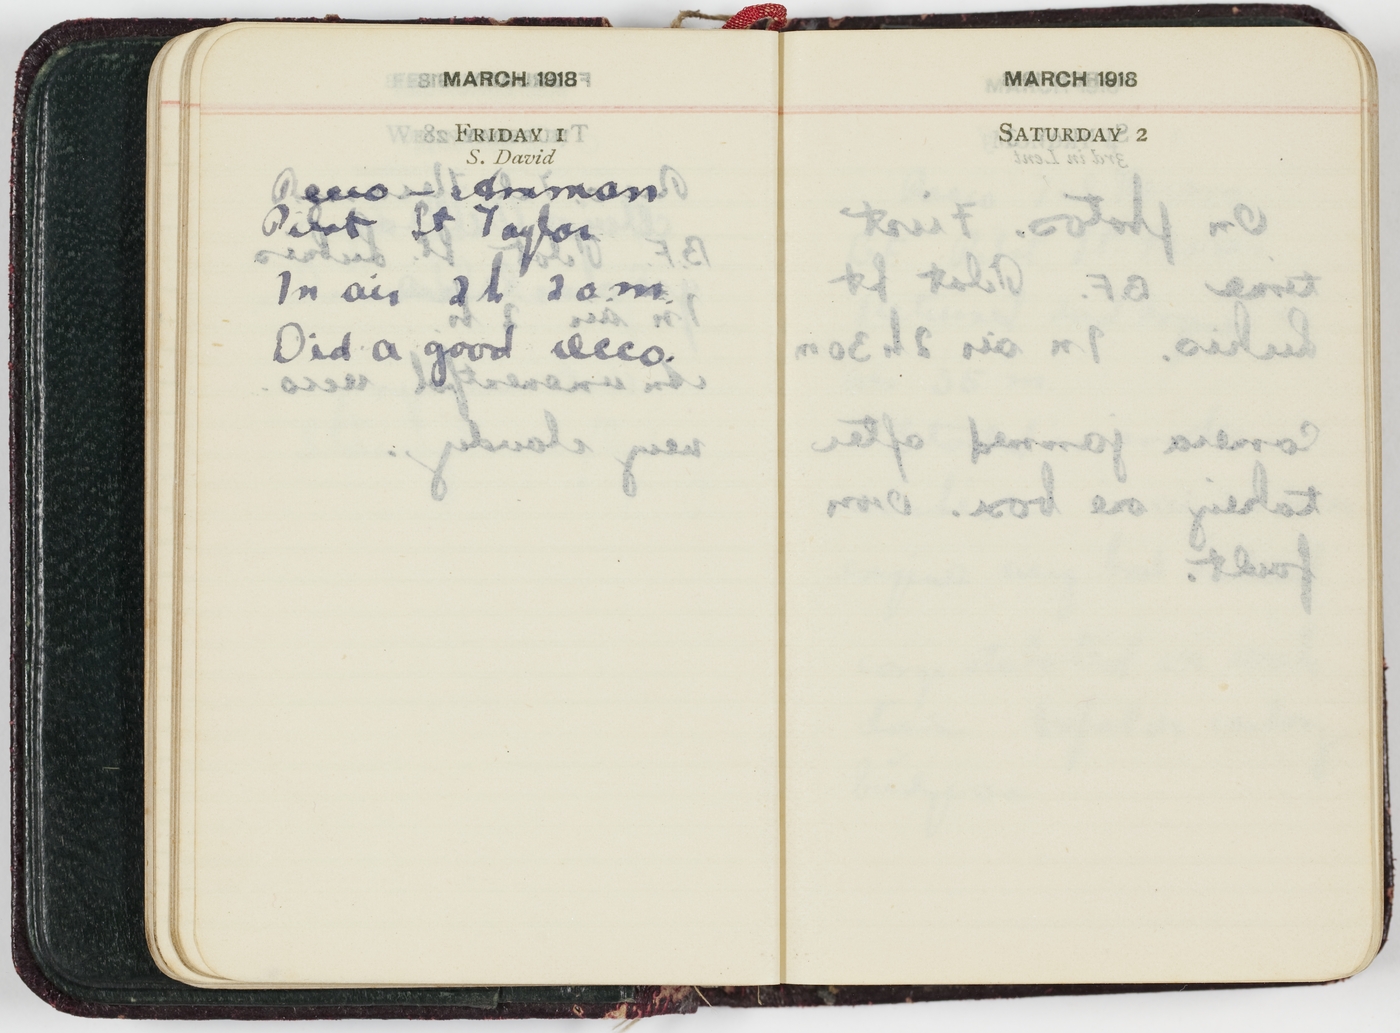 MARCH 1918
FRIDAY 1
S. David
Recco - Amman
Pilot Lt Taylor
In air 2h 20m.
Did a good recco.
MARCH 1918
SATURDAY 2